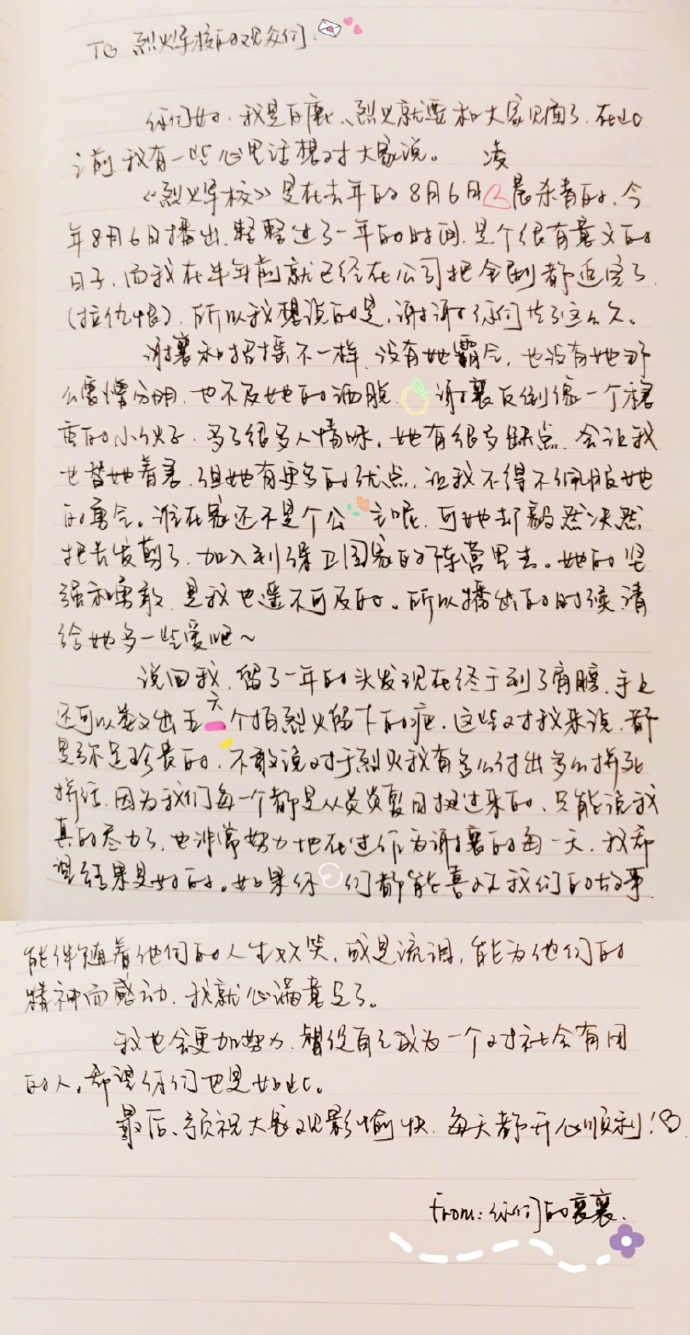 To 烈火军校的观众们:
你们好。我是白鹿、烈火就要和大家见面了。在此
之前我有一些心里话想对大家说。 凌
《烈火军校》是在去年的8月6日晨杀青的、今
年8月6日播出、整整过了一年的时间、是个很有意义的
日子、而我在半年前就已经在公司把全剧都追完了
(拉仇恨)、所以我想说的是、谢谢你们等了这么久。
谢襄和招摇不一样、没有她霸气、也没有她那
么爱憎分明、也不及她的洒脱、谢襄反倒像一个稳
重的小伙子、多了很多人情味。她有很多缺点、会让我
也替她着急、但她有更多的优点、让我不得不佩服她
的勇气。谁在家还不是个公主呢、可她却毅然决然
把长发剪了、加入到保卫国家的阵营里去。她的坚
强和勇敢、是我也遥不可及的。所以播出的时候、请
给她多一些爱吧~
说回我、留了一年的头发现在终于到了肩膀、手上
还可以数出五六个拍烈火留下的疤、这些对我来说、都
是弥足珍贵的、不敢说对于烈火我有多么付出多么拼死
拼活、因为我们每一个都是从炎炎夏日挺过来的、只能说我
真的尽力了、也非常努力地在过作为谢襄的每一天、我希
望结果是好的。如果你们都能喜欢我们的故事
能伴随着他们的人生欢笑、或是流泪、能为他们的
精神而感动、我就心满意足了。
我也会更加努力、督促自己成为一个对社会有用
的人、希望你们也是如此。
最后、预祝大家观影愉快、每天都开心顺利!
From: 你们的襄襄.